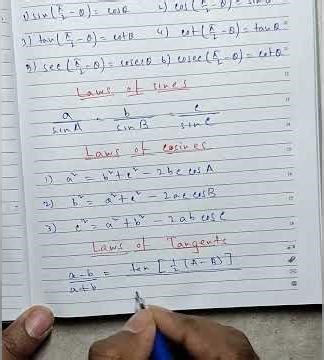 1) sin(π/2 - θ) = cosθ 2) cos(π/2 - θ) = sinθ
3) tan(π/2 - θ) = cotθ 4) cot(π/2 - θ) = tanθ
5) sec(π/2 - θ) = cosecθ 6) cosec(π/2 - θ) = cotθ
Laws of sines
a/sinA = b/sinB = c/sinC
Laws of cosines
1) a² = b² + c² - 2bc cosA
2) b² = a² + c² - 2ac cosB
3) c² = a² + b² - 2ab cosC
Laws of Tangents
a-b/a+b = tan[½(A-B)]